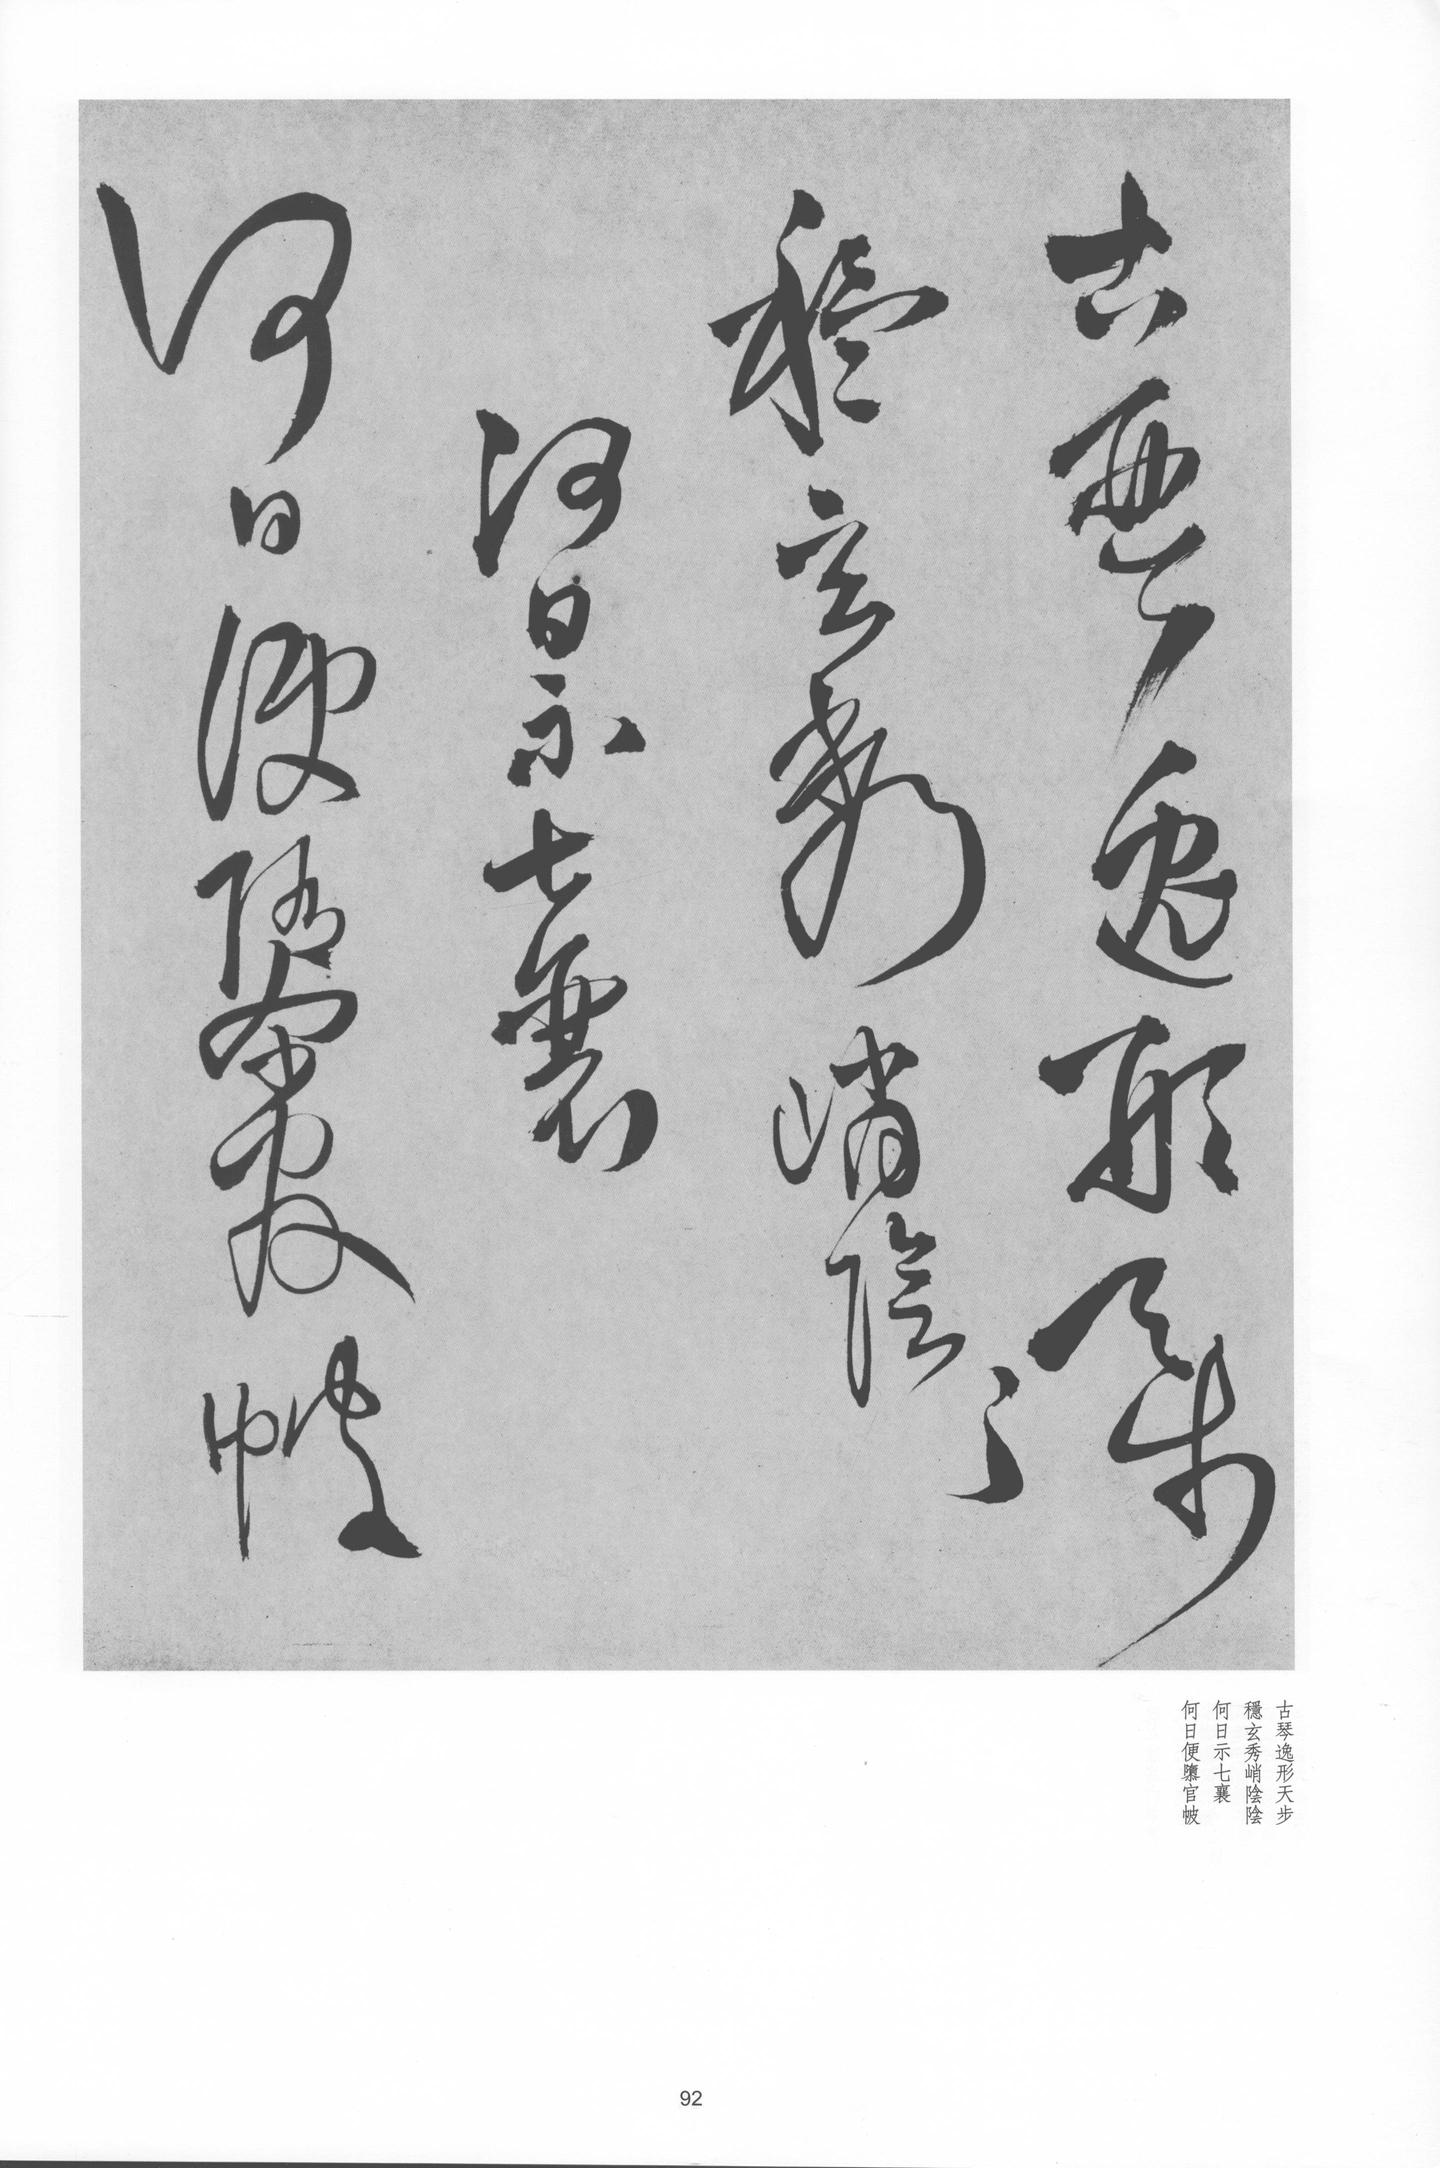 古琴逸形天步
穩玄秀峭陰陰
何日示七襄
何日便隳官帔
古琴逸形天步
穩玄秀峭陰陰
何日示七襄
何日便隳官帔
92